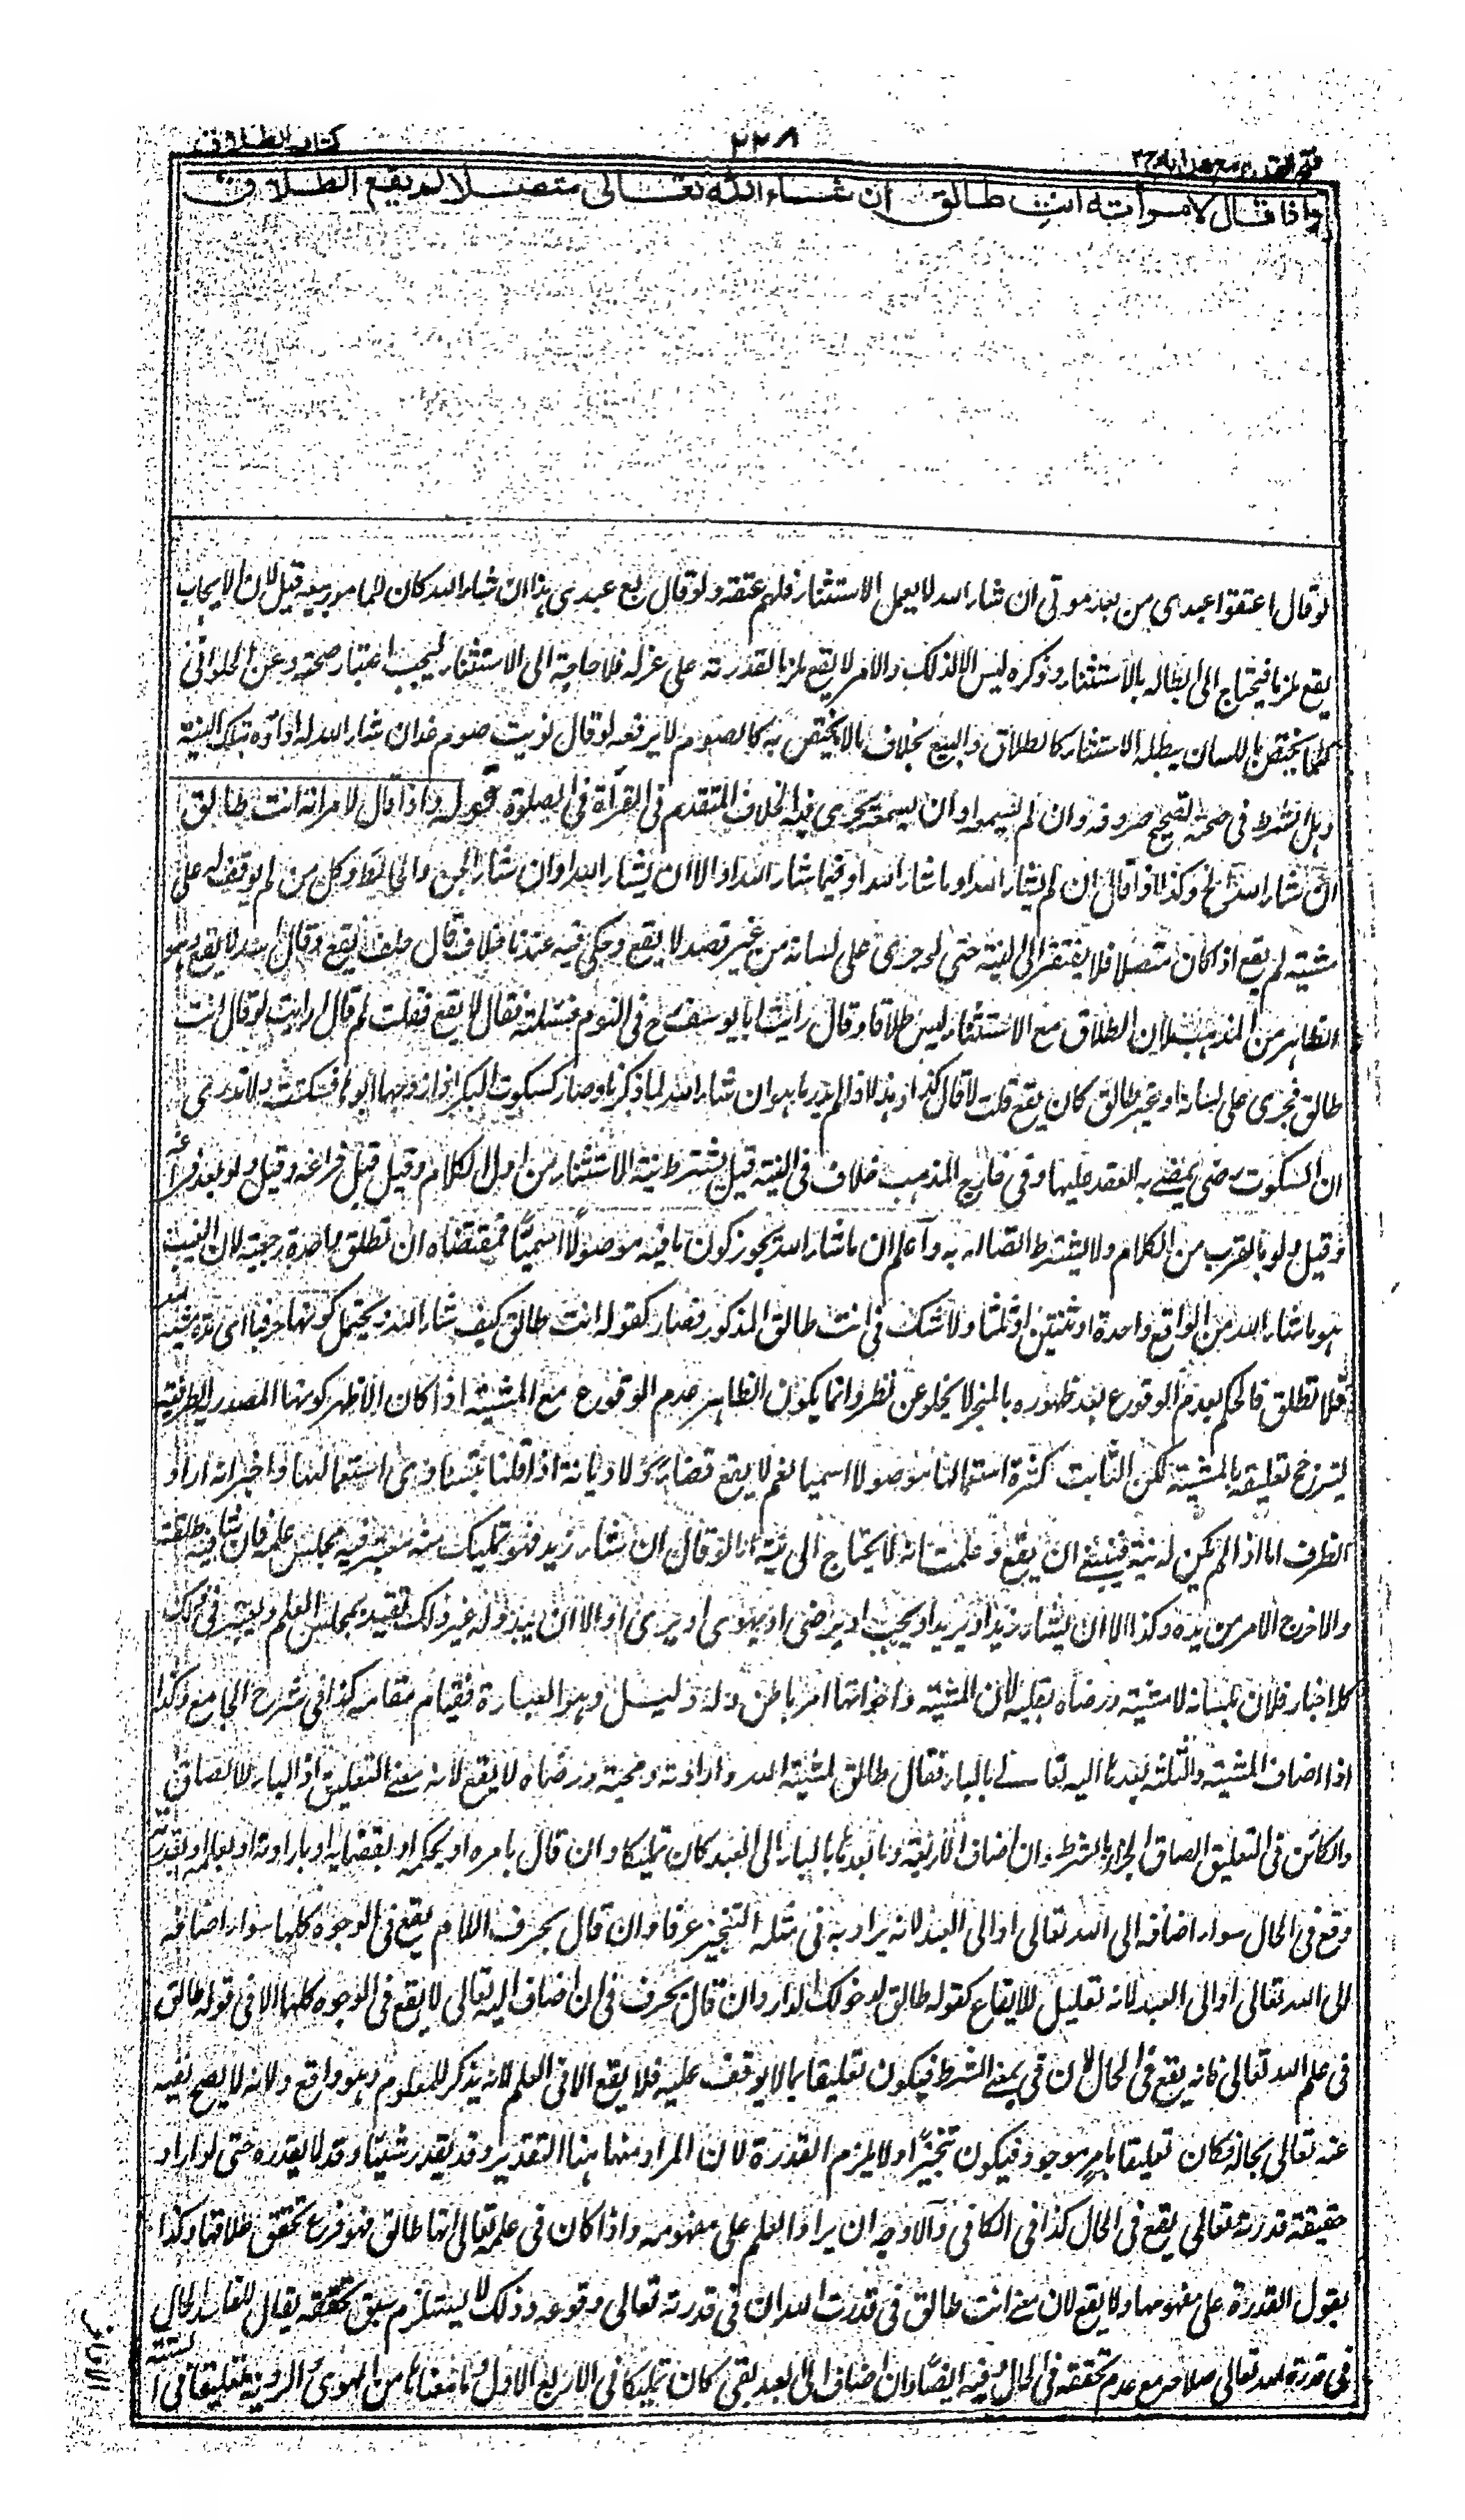 كتاب الطلاق
٢٢٨
فتح القدير مع هدايه ج٢
واذا قال لامرأته انت طالق ان شاء الله تعالى متصلا لم يقع الطلاق
لو قال اعتقوا عبدى من بعد موتى ان شاء الله لا يعمل الاستثناء فلهم عتقه ولو قال بع عبدى هذا ان شاء الله كان للمأمور بيعه قيل لان الايجاب
يقع ملزما فيحتاج الى ابطاله بالاستثناء وذكره ليس الا لذلك والامر لا يقع ملزما لقدرته على عزله فلا حاجة الى الاستثناء ليجب اعتبار صحته وعن الحلوانى
كلما يختص باللسان يبطله الاستثناء كالطلاق والبيع بخلاف ما لا يختص به كالصوم لا يرفعه لو قال نويت صوم غد ان شاء الله له اداؤه بتلك النية
وهل يشترط فى صحته تصحيح حروفه وان لم يسمعه او ان يسمعه يجرى فيه الخلاف المتقدم فى القرآة فى الصلوة قوله واذا قال لامرأته انت طالق
ان شاء الله الخ وكذا اذا قال ان لم يشأ الله او ما شاء الله او فيما شاء الله او الا ان يشاء الله او ان شاء الجن والحائط وكل من لم يوقف له على
مشيته لم يقع اذا كان متصلا فلا يفتقر الى النية حتى لو جرى على لسانه من غير قصد لا يقع وحكى فيه عندنا خلاف قال خلف يقع وقال اسد لا يقع وهو
الظاهر من المذهب لان الطلاق مع الاستثناء ليس طلاقا وقال رايت ابا يوسف رح فى النوم فسئلته فقال لا يقع فقلت لم قال ارايت لو قال انت
طالق فجرى على لسانه او غير طالق كان يقع قلت لا قال كذا وهذا اذا لم يدر ما هو ان شاء الله لما ذكرنا وصار كسكوت البكر اذا زوجها ابوها فسكتت ولا تدرى
ان السكوت رضى يمضى به العقد عليها وفى خارج المذهب خلاف فى النية قيل يشترط نية الاستثناء من اول الكلام وقيل قبل فراغه وقيل ولو بعد فراغه
وقيل ولو بالقرب من الكلام ولا يشترط اتصاله به واعلم ان ما شاء الله يجوز كون ما فيه موصولا اسميا فمقتضاه ان تطلق واحدة رجعية لان الغيب
هو ما شاء الله من الواقع واحدة او ثنتين او ثلثا ولا شك فى انت طالق المذكور فصار كقوله انت طالق كيف شاء الله ويحتمل كونها حرفيا اى مدة مشية الله
فلا تطلق فالحكم بعدم الوقوع بعد ظهوره بالمنجز لا يخلو عن نظر وانما يكون الظاهر عدم الوقوع مع المشية اذا كان الاظهر كونها المصدرية الظرفية
ليترجح تعليقه بالمشية لكن الثابت كثرة استعمالها موصولا اسميا نعم لا يقع قضاء ولا ديانة اذا قلنا بتساوى استعمالها واخبر انه اراد
الظرف اما اذا لم يكن له نية فينبغى ان يقع وعلمت انه لا يحتاج الى نية اما لو قال ان شاء زيد فهو تمليك منه معتبر فيه مجلس علمه فان شاء فيه طلقت
والا خرج الامر من يده وكذا الا ان يشاء زيد او يريد او يحب او يرضى او يهوى او يرى او الا ان يبدو له غير ذلك تقيد بمجلس العلم ويعتبر فى ذلك
كله اخبار فلان بلسانه لا مشيته ورضاه بقلبه لان المشية واخواتها امر باطن وله دليل وهو العبارة فيقام مقامه كذا فى شرح الجامع وكذا
اذا اضاف المشية والثلثة بعدها اليه تعالى بالباء فقال طالق بمشية الله وارادته ومحبته ورضاه لا يقع لانه معنى التعليق اذ الباء للالصاق
والكائن فى التعليق الصاق الجزاء بالشرط وان اضاف الاربعة وما بعدها بالباء الى العبد كان تمليكا وان قال بامره او بحكمه او بقضائه او باذنه او بعلمه او بقدرته
وقع فى الحال سواء اضافه الى الله تعالى او الى العبد لانه يراد به فى مثله التنجيز عرفا وان قال بحرف اللام يقع فى الوجوه كلها سواء اضافه
الى الله تعالى او الى العبد لانه تعليل للايقاع كقوله طالق لدخولك الدار وان قال بحرف فى ان اضاف اليه تعالى لا يقع فى الوجوه كلها الا فى قوله طالق
فى علم الله تعالى فانه يقع فى الحال لان فى بمعنى الشرط فيكون تعليقا بما لا يوقف عليه فلا يقع الا فى العلم لانه يذكر للمعلوم وهو واقع ولانه لا يصح نفيه
عنه تعالى بحال فكان تعليقا بامر موجود فيكون تنجيزا ولا يلزم القدرة لان المراد منها هنا التقدير وقد يقدر شيئا وقد لا يقدره حتى لو اراد
حقيقة قدرته تعالى يقع فى الحال كذا فى الكافى والاوجه ان يراد العلم على مفهومه واذا كان فى علمه تعالى انها طالق فهو فرع تحقق طلاقها وكذا
يقول القدرة على مفهومها ولا يقع لان معنى انت طالق فى قدرة الله ان فى قدرته تعالى وقوعه وذلك لا يستلزم سبق تحققه يقال للفاسد الحال
فى قدرة الله تعالى صلاحه مع عدم تحققه فى الحال وفيه ايضا وان اضاف الى العبد بفى كان تمليكا فى الاربع الاول وما معناها من الهوى والرؤية تعليقا فى الستة